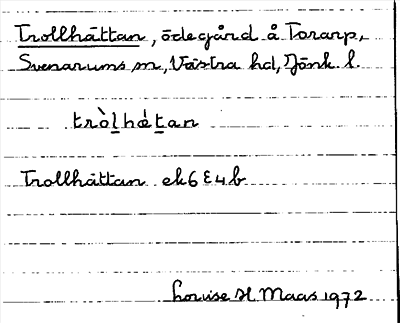 Trollhättan, ödegård å Torarp,
Svenarums sn, Västra hd, Jönk. l.
tròl̲hát̲an
Trollhättan ek6E4b
Louise H. Maas 1972